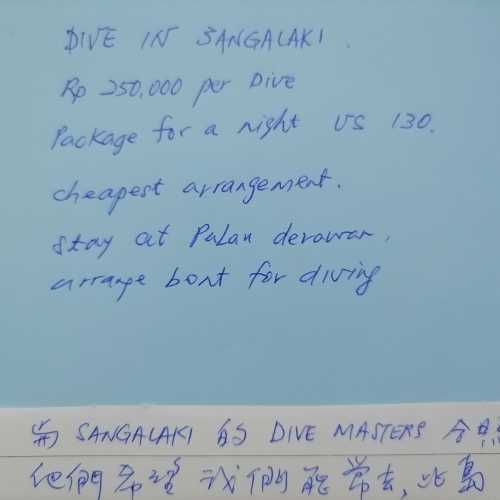 DIVE IN SANGALAKI.
Rp 250,000 per Dive
Package for a night US 130.
cheapest arrangement.
stay at Pulau derawan,
arrange boat for diving
與 SANGALAKI 的 DIVE MASTERS 合照
他們希望我們能常去此島